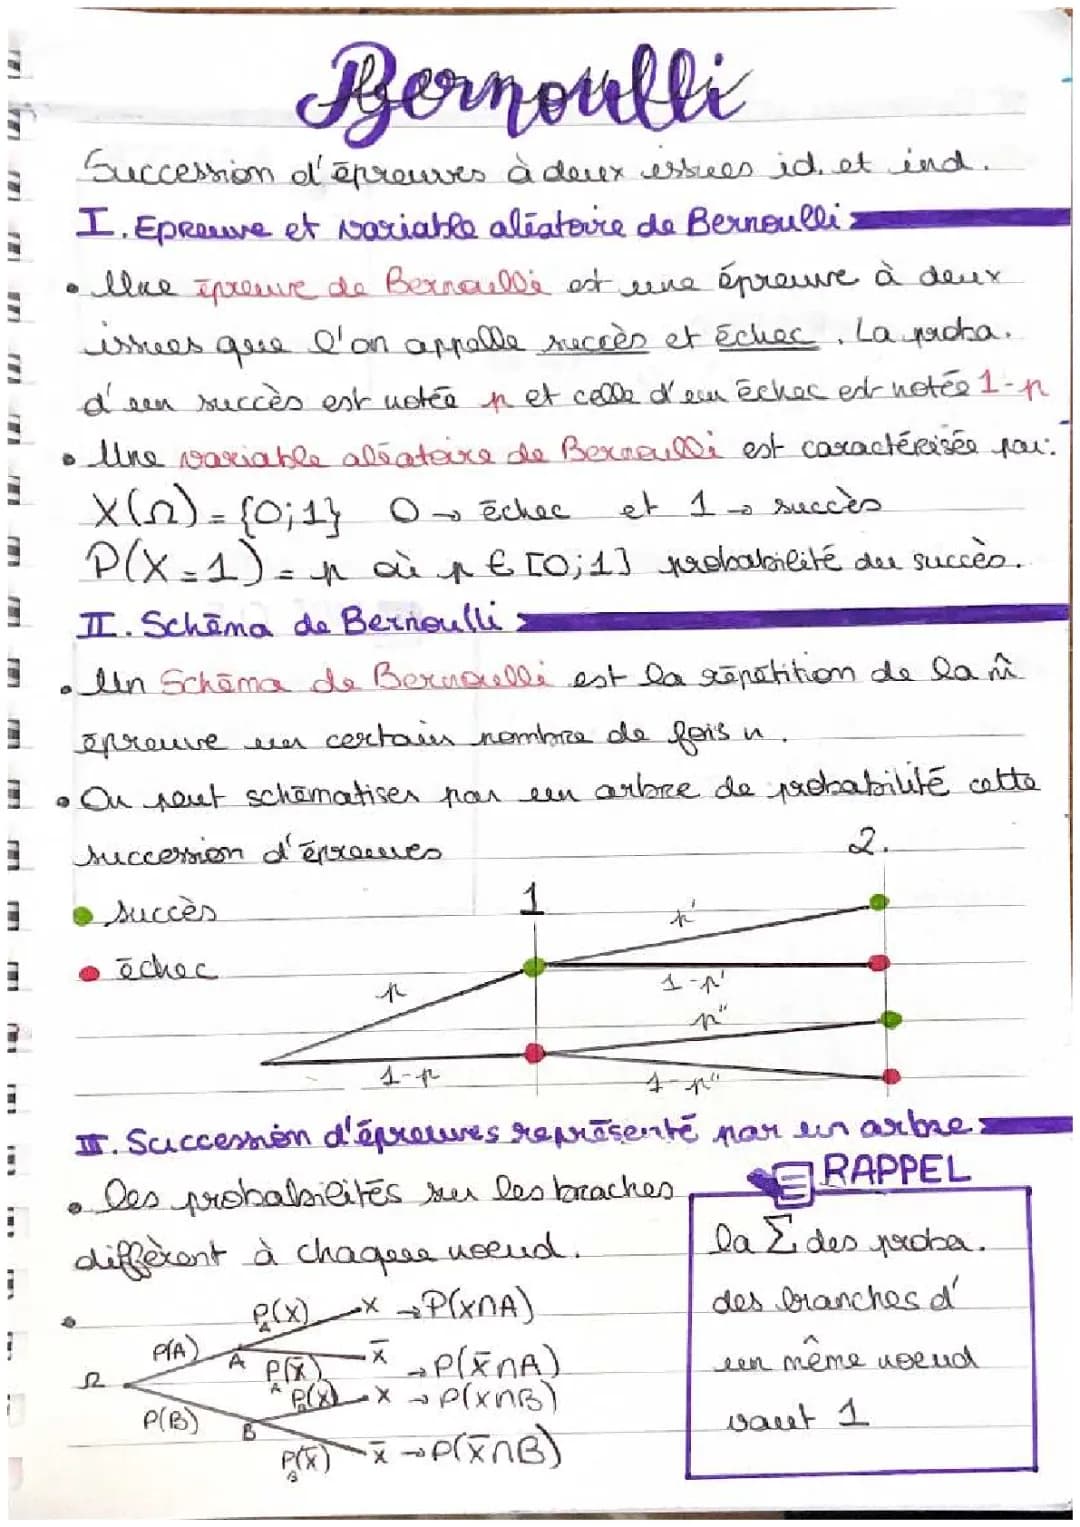 Bernoulli
Succession d'épreuves à deux issues id. et ind.
I. Epreuve et variable aléatoire de Bernoulli
• Une épreuve de Bernoulli est une épreuve à deux
issues que l'on appelle succès et échec. La proba.
d'un succès est notée p et celle d'un échec est notée 1-p
• Une variable aléatoire de Bernoulli est caractérisée par:
X(Ω) = {0;1} 0 → échec et 1 → succès
P(X=1) = p où p ∈ [0;1] probabilité du succès.
II. Schéma de Bernoulli
• Un Schéma de Bernoulli est la répétition de la m̂
épreuve un certain nombre de fois n.
• On peut schématiser par un arbre de probabilité cette
succession d'épreuves
2.
• succès
1
p'
• échec
p
1-p'
p"
1-p
1-p"
III. Succession d'épreuves représenté par un arbre
RAPPEL
• les probabilités sur les braches
diffèrent à chaque noeud.
la Σ des proba.
des branches d'
un même noeud
vaut 1
• P_A(X) X → P(X∩A)
P(A) A P_A(X̄) X̄ → P(X̄∩A)
Ω P_B(X) X → P(X∩B)
P(B) B
P_B(X̄) X̄ → P(X̄∩B)